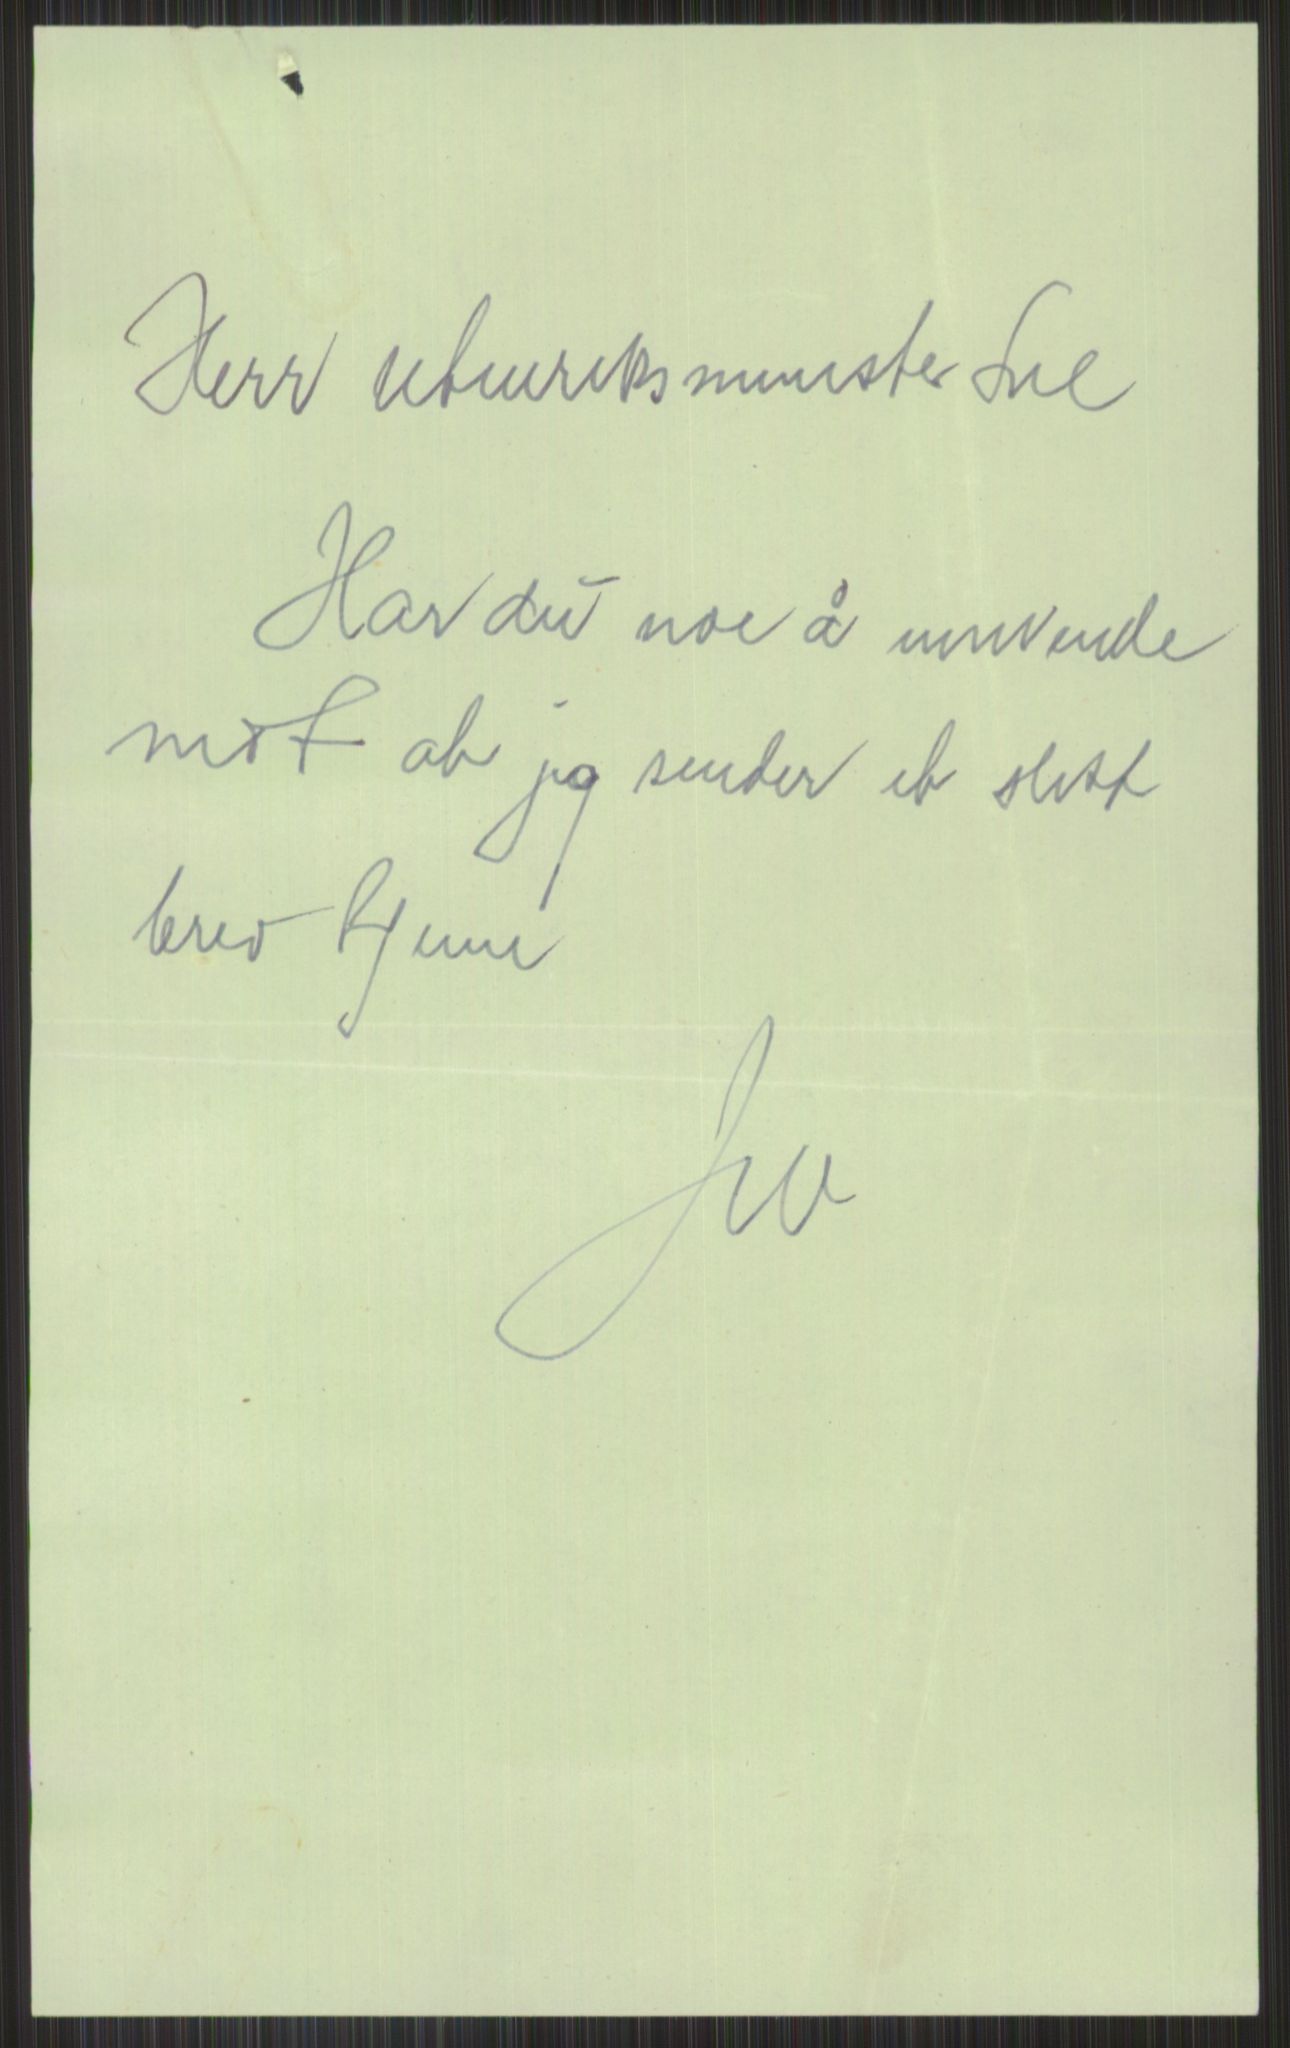 Herr utenriksminister Lie
Har du noe å innvende
mot at jeg sender et slikt
brev hjem